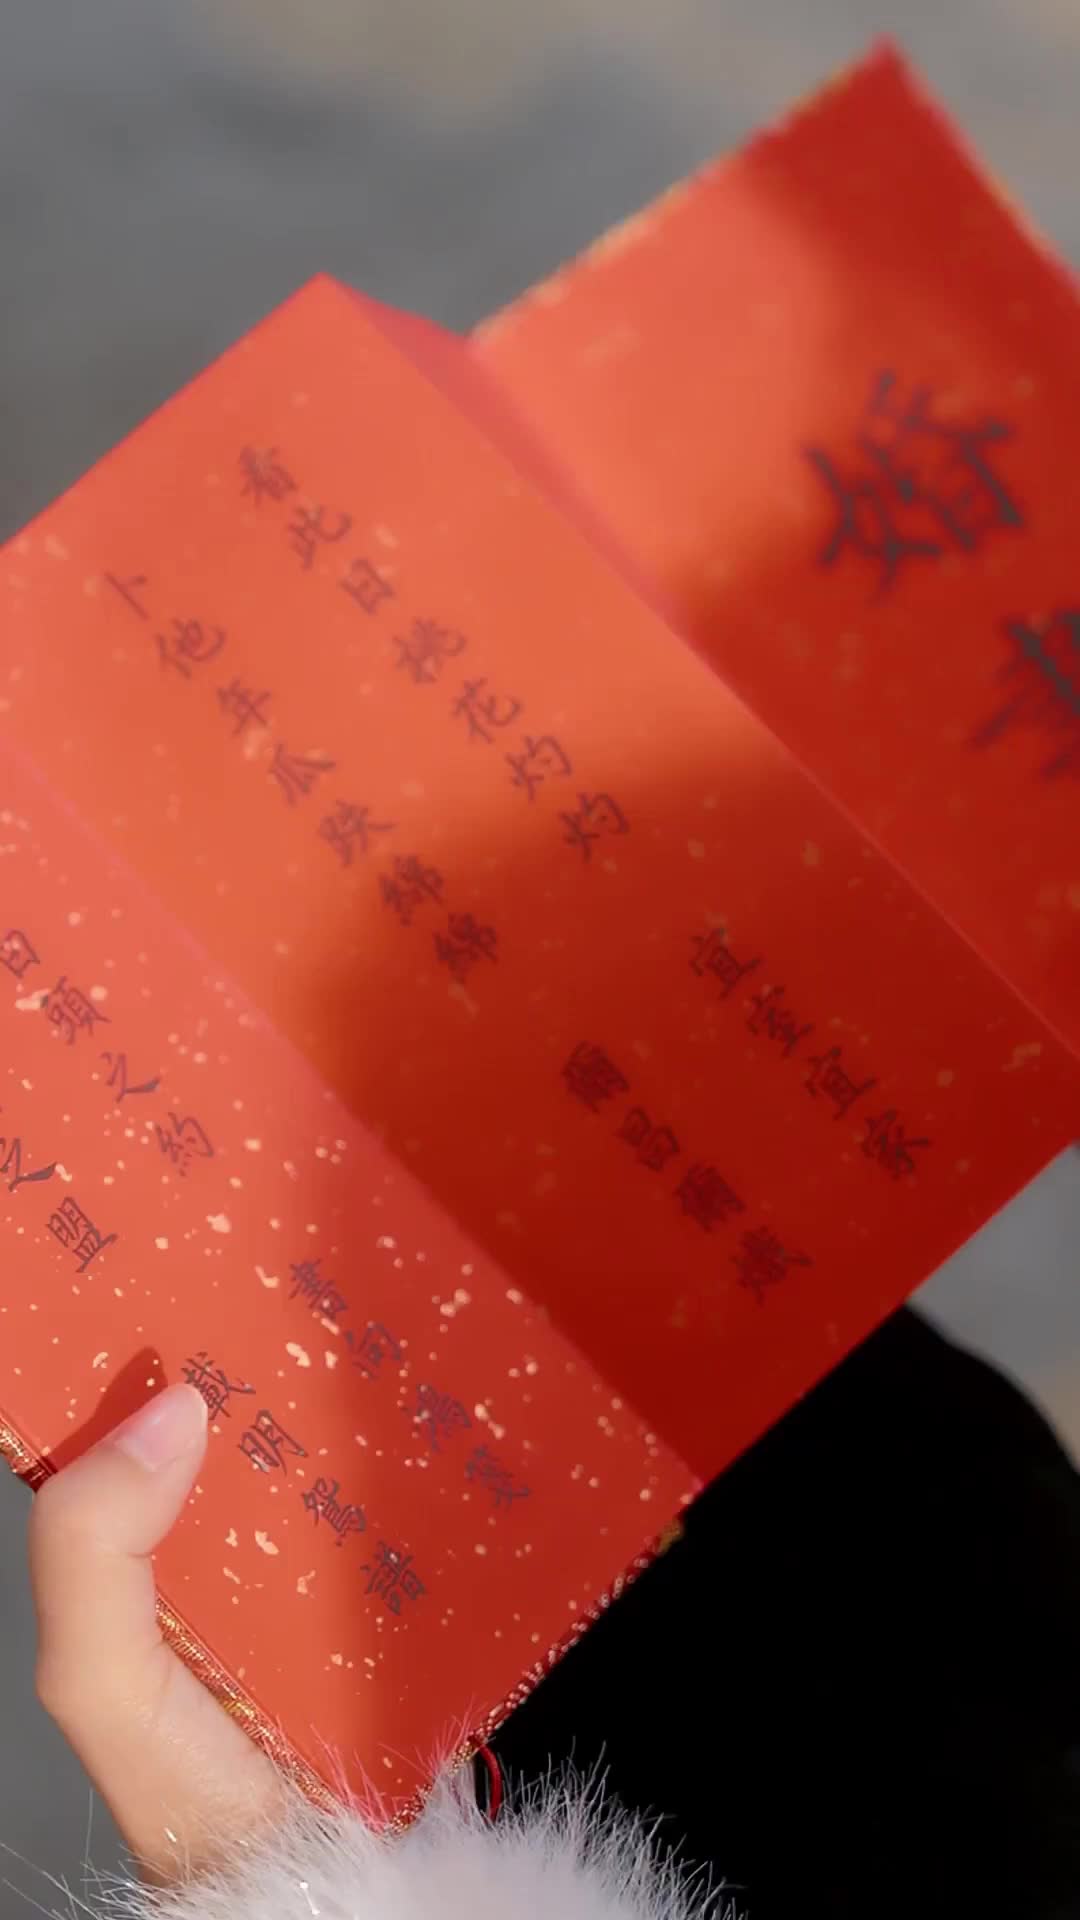 婚書
看此日桃花灼灼 宜室宜家
卜他年瓜跌綿綿 爾昌爾熾
白頭之約 書向鴻箋
之盟 載明鴛譜